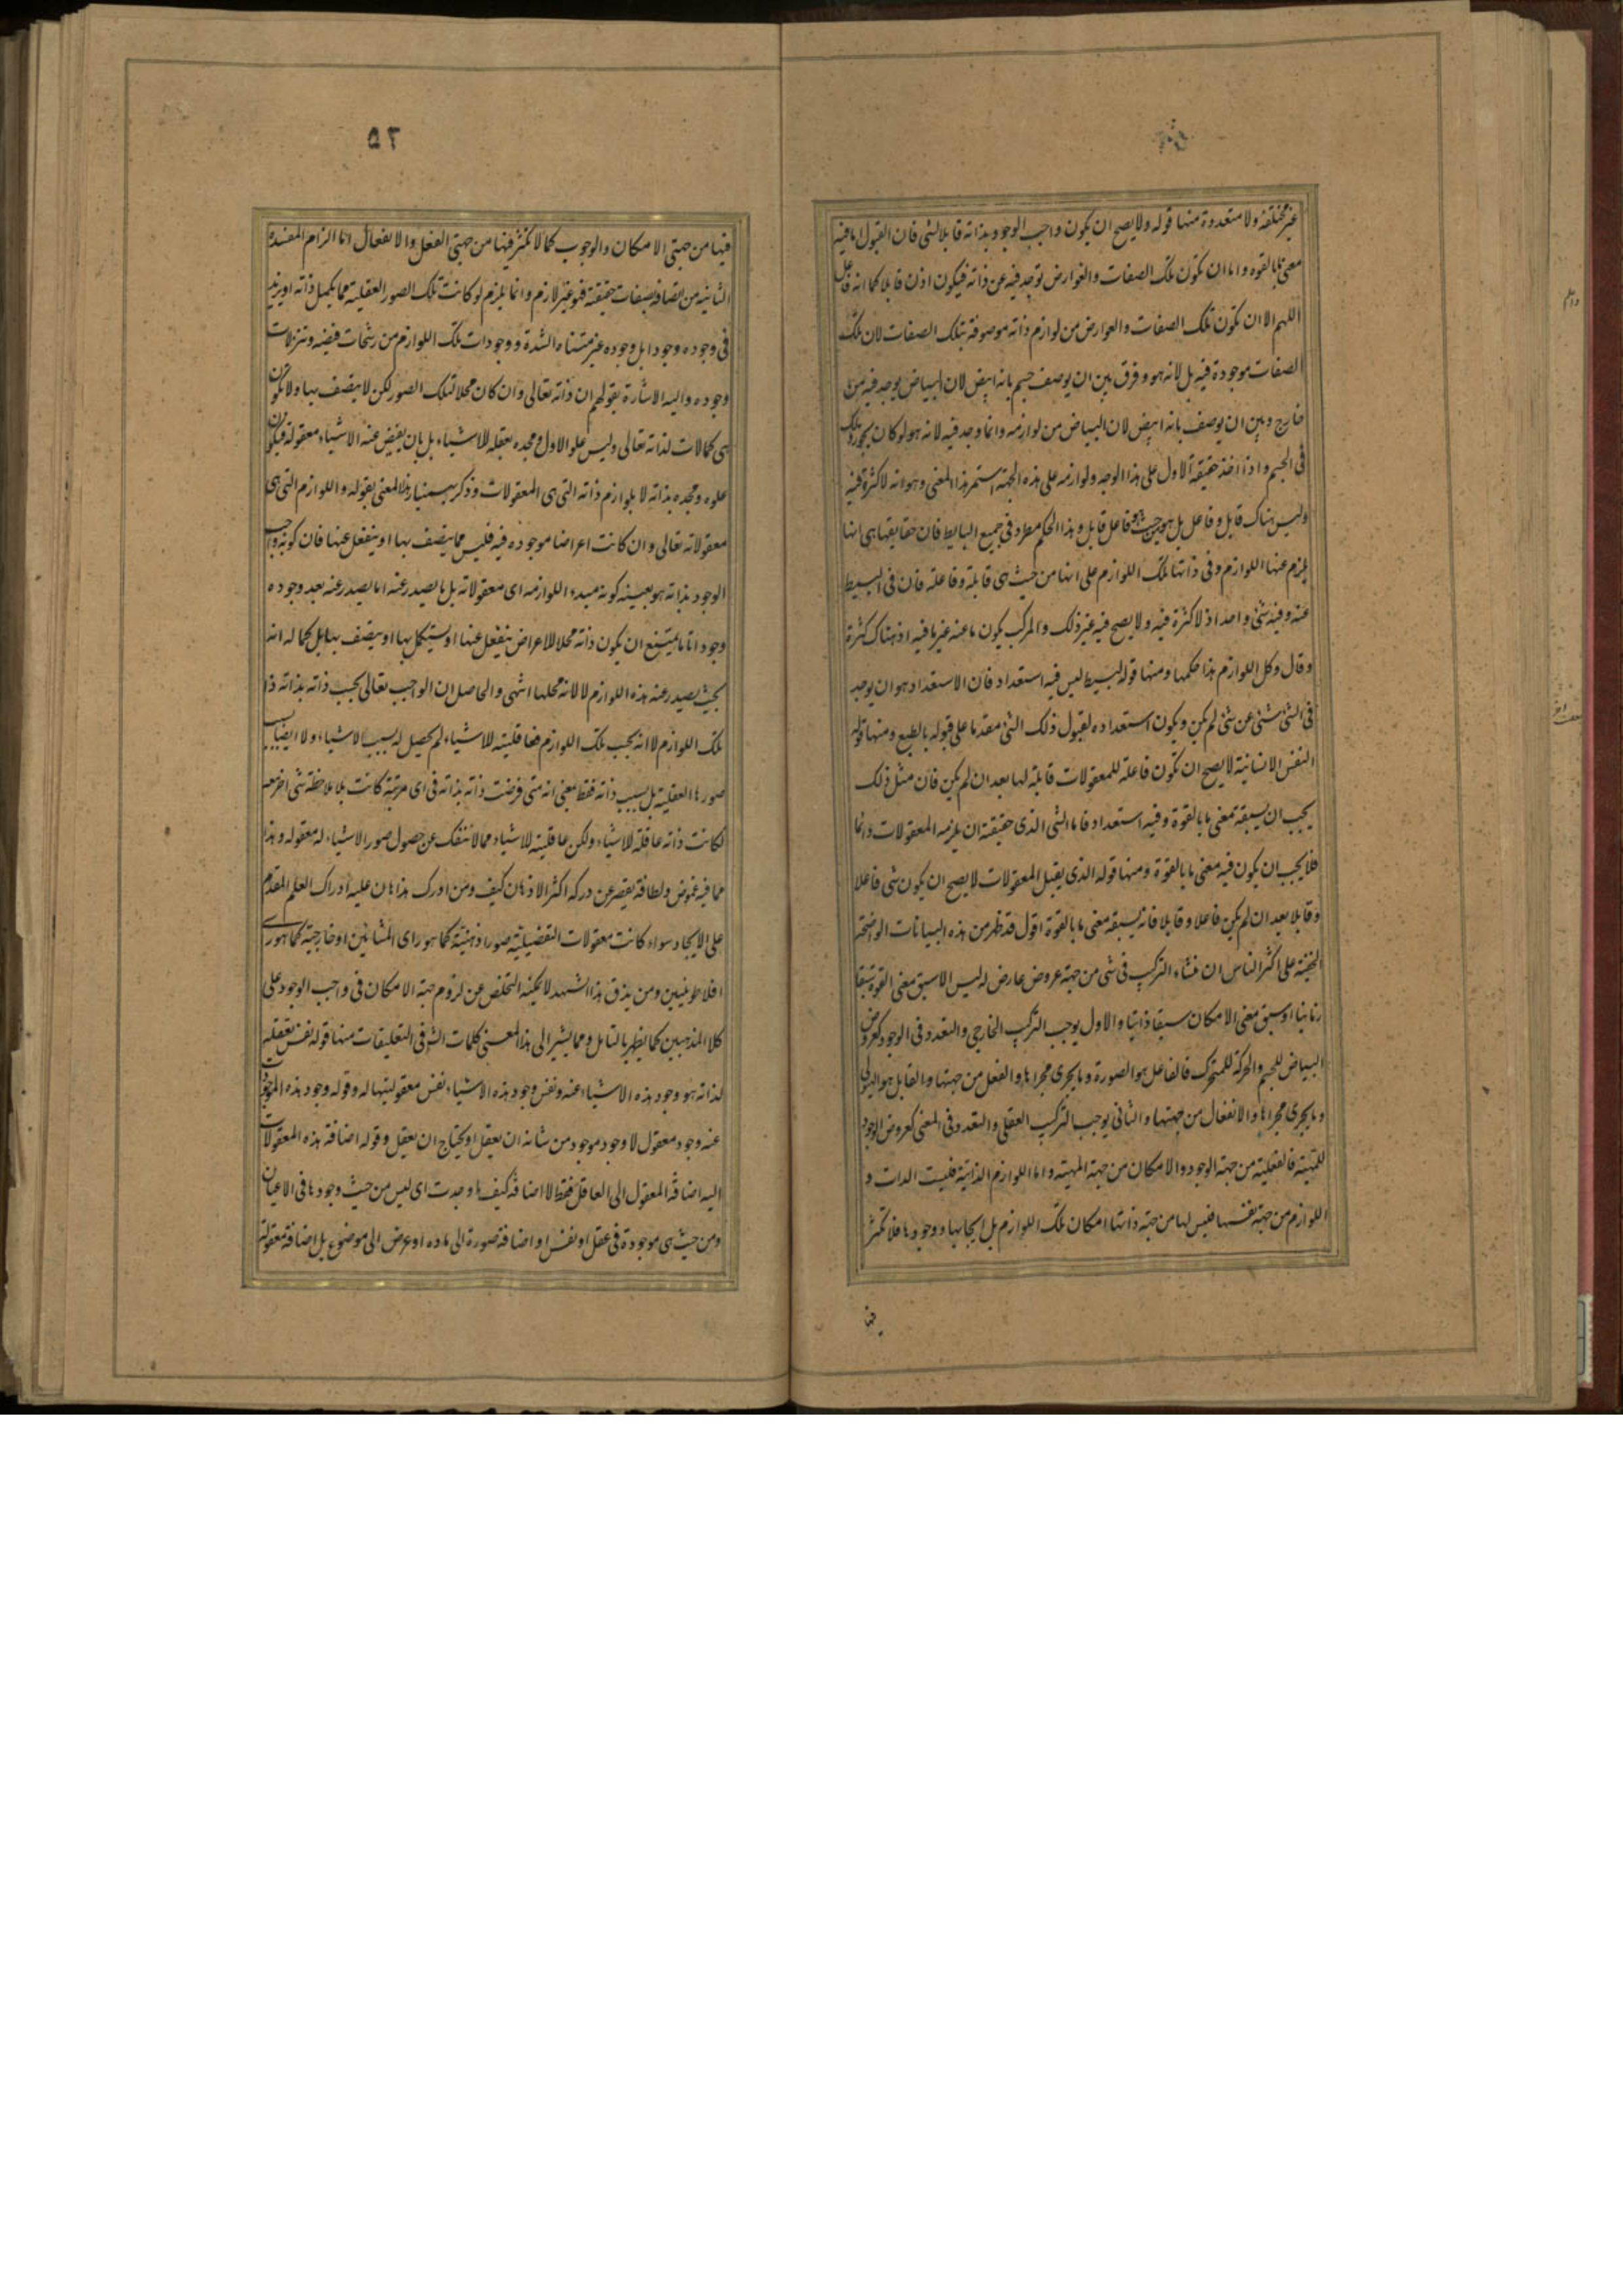 غير مختلفة ولا متعددة منها قوله ولا يصح ان يكون واجب الوجود بذاته قابلا لشئ فان القبول لما فيه
معنى ما بالقوه واما ان تكون تلك الصفات والعوارض توجد فيه عن ذاته فيكون اذن قابلا كما انه فاعل
اللهم الا ان تكون تلك الصفات والعوارض من لوازم ذاته موصوفة بتلك الصفات لان تلك
الصفات موجودة فيه بل لانه هو وفرق بين ان يوصف جسم بانه ابيض لان البياض يوجد فيه من
خارج وبين ان يوصف بانه ابيض لان البياض من لوازمه وانما وجد فيه لانه هو لو كان يجوز ذلك
فى الجسم واذا اخذ حقيقة الاول على هذا الوجه ولوازمه على هذه الجهة استمر هذا المعنى وهو انه لا كثرة فيه
وليس هناك قابل وفاعل بل هو من حيث هو فاعل قابل وهذا الحكم مطرد فى جميع البسايط فان حقايقها هى انها
يلزم عنها اللوازم وفى ذاتها تلك اللوازم على انها من حيث هى قابلة وفاعلة فان فى البسيط
عنه وفيه شئ واحد اذ لا كثرة فيه ولا يصح فيه غير ذلك والمركب يكون ما عنه غير ما فيه اذ هناك كثرة
وقال وكل اللوازم هذا حكمها ومنها قوله البسيط ليس فيه استعداد فان الاستعداد هو ان يوجد
فى الشئ شئ عن شئ لم يكن ويكون استعداده لقبول ذلك الشئ مقدما على قبوله بالطبع ومنها قوله
النفس الانسانية لا يصح ان تكون فاعلة للمعقولات قابلة لها بعد ان لم يكن فان مثل ذلك
يجب ان يسبقه معنى ما بالقوة وفيه استعداد فاما الشئ الذى حقيقته ان يلزمه المعقولات دائما
فلا يجب ان يكون فيه معنى ما بالقوة ومنها قوله الذى يقبل المعقولات لا يصح ان يكون شئ فاعلا
وقابلا بعد ان لم يكن فاعلا وقابلا فانه يسبقه معنى ما بالقوة اقول قد ظهر من هذه البيانات الواضحة
الخفية على اكثر الناس ان منشاء التركيب فى شئ من جهة عروض عارض له ليس الا سبق معنى القوة سبقا
زمانيا او سبق معنى الامكان سبقا ذاتيا والاول يوجب التركيب الخارجى والتعدد فى الوجود كعروض
البياض للجسم والحركة للمتحرك فالفاعل هو الصورة وما يجرى مجراها والفعل من جهتها والقابل هو الهيولى
وما يجرى مجراها والانفعال من جهتها والثانى يوجب التركيب العقلى والتعدد فى المعنى كعروض الوجود
للمهية فالفعلية من جهة الوجود والامكان من جهة المهية واما اللوازم الذاتية فليست الذات و
اللوازم من جهة نفسها فليس لها من جهة ذاتها امكان تلك اللوازم بل ايجابها ووجودها فلا تكثر
فيها
٥٢
فيها من جهتى الامكان والوجوب كما لا تكثر فيها من جهتى الفعل والانفعال اما الزام المفسدة
الثانية من اتصافه بصفات حقيقة فهو غير لازم وانما يلزم لو كانت تلك الصور العقلية مما يكمل ذاته او يزيد
فى وجوده وجودا بل وجوده غير متناه الشدة ووجودات تلك اللوازم من رشحات فيضه وتنزلات
وجوده واليه الاشارة بقولهم ان ذاته تعالى وان كان محلا لتلك الصور لكن لا يتصف بها ولا تكون
هى كمالات لذاته تعالى وليس علو الاول ومجده بعقله للاشياء بل بان يفيض عنه الاشياء معقولة فيكون
علوه ومجده بذاته لا بلوازم ذاته التى هى المعقولات وذكر بهمنيار هذا المعنى بقوله واللوازم التى هى
معقولاته تعالى وان كانت اعراضا موجوده فيه فليس مما يتصف بها او ينفعل عنها فان كونه واجب
الوجود بذاته هو بعينه كونه مبدء اللوازمه اى معقولاته بل ما يصدر عنه انما يصدر عنه بعد وجوده
وجودا تاما يمتنع ان يكون ذاته محلا للاعراض ينفعل عنها او يستكمل بها او يتصف بها بل كماله انه
بحيث يصدر عنه هذه اللوازم لا لانه محلها انتهى والحاصل ان الواجب تعالى بحسب ذاته بذاته ذا
تلك اللوازم لا انه بحسب تلك اللوازم فعاقليته للاشياء لم يحصل له بسبب الاشياء ولا ايضا بسبب
صورها العقلية بل بسبب ذاته فقط بمعنى انه متى فرضت ذاته بذاته فى اى مرتبة كانت بلا ملاحظة شئ اخر معه
لكانت ذاته عاقلة للاشياء ولكن عاقليته للاشياء مما لا تنفك عن حصول صور الاشياء له معقوله وهذا
مما فيه غموض ولطافة يقصر عن دركه اكثر الاذهان كيف ومن ادرك هذا هان عليه ادراك العلم المقدم
على الايجاد سواء كانت معقولات التفضيلية صورا ذهنية كما هو راى المشائين او خارجية كما هو راى
افلاطونيين ومن يذق هذا الشهد لا يمكنه التخلص عن لزوم جهة الامكان فى واجب الوجود على
كلا المذهبين كما يظهر بالتامل ومما يشير الى هذا المعنى كلمات الشيخ فى التعليقات منها قوله نفس تعقله
لذاته هو وجود هذه الاشياء عنه ونفس وجود هذه الاشياء نفس معقوليتها له وقوله وجود هذه الموجودات
عنه وجود معقول لا وجود موجود من شانه ان يعقل او يحتاج ان يعقل وقوله اضافة هذه المعقولات
اليه اضافة المعقول الى العاقل فقط لا اضافة كيف ما وجدت اى ليس من حيث وجودها فى الاعيان
ومن حيث هى موجودة فى عقل او نفس او اضافة صورة الى ماده او عرض الى موضوع بل اضافة معقولة